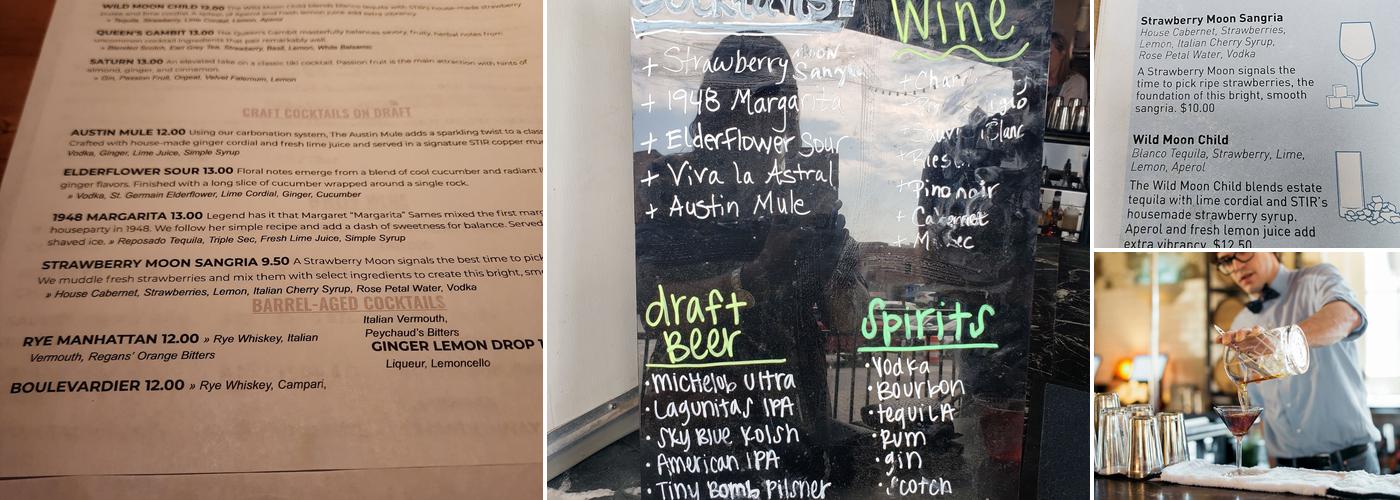 WILD MOON CHILD 12.00 The Wild Moon Child blends blanco tequila with STIR's house-made strawberry
puree and lime cordial. A splash of Aperol and fresh lemon juice add extra vibrancy.
» Tequila, Strawberry, Lime Cordial, Lemon, Aperol
QUEEN'S GAMBIT 13.00 The Queen's Gambit masterfully balances savory, fruity, herbal notes from
uncommon cocktail ingredients that pair remarkably well.
» Blended Scotch, Earl Grey Tea, Strawberry, Basil, Lemon, White Balsamic
SATURN 13.00 An elevated take on a classic tiki cocktail. Passion fruit is the main attraction with hints of
almond, ginger, and cinnamon.
» Gin, Passion Fruit, Orgeat, Velvet Falernum, Lemon
CRAFT COCKTAILS ON DRAFT
AUSTIN MULE 12.00 Using our carbonation system, The Austin Mule adds a sparkling twist to a
Crafted with house-made ginger cordial and fresh lime juice and served in a signature STIR copper
Vodka, Ginger, Lime Juice, Simple Syrup
ELDERFLOWER SOUR 13.00 Floral notes emerge from a blend of cool cucumber and radiant
ginger flavors. Finished with a long slice of cucumber wrapped around a single rock.
» Vodka, St. Germain Elderflower, Lime Cordial, Ginger, Cucumber
1948 MARGARITA 13.00 Legend has it that Margaret "Margarita" Sames mixed the first
houseparty in 1948. We follow her simple recipe and add a dash of sweetness for balance. Served
shaved ice. » Reposado Tequila, Triple Sec, Fresh Lime Juice, Simple Syrup
STRAWBERRY MOON SANGRIA 9.50 A Strawberry Moon signals the best time to pick
We muddle fresh strawberries and mix them with select ingredients to create this bright,
» House Cabernet, Strawberries, Lemon, Italian Cherry Syrup, Rose Petal Water, Vodka
BARREL-AGED COCKTAILS
RYE MANHATTAN 12.00 » Rye Whiskey, Italian
Vermouth, Regans' Orange Bitters
BOULEVARDIER 12.00 » Rye Whiskey, Campari,
Italian Vermouth,
Peychaud's Bitters
GINGER LEMON DROP
Liqueur, Lemoncello
COCKTAILS!
+ Strawberry MOON
Sangria
+ 1948 Margarita
+ Elderflower Sour
+ Viva la Astral
+ Austin Mule
Wine
+ Pino noir
+ Cabernet
draft
BEER
• Michelob Ultra
• Lagunitas IPA
• Sky Blue Kolsh
• American IPA
• Tiny Bomb Pilsner
Spirits
• Vodka
• Bourbon
• tequila
• Rum
• gin
• Scotch
Strawberry Moon Sangria
House Cabernet, Strawberries,
Lemon, Italian Cherry Syrup,
Rose Petal Water, Vodka
A Strawberry Moon signals the
time to pick ripe strawberries, the
foundation of this bright, smooth
sangria. $10.00
Wild Moon Child
Blanco Tequila, Strawberry, Lime,
Lemon, Aperol
The Wild Moon Child blends estate
tequila with lime cordial and STIR's
housemade strawberry syrup.
Aperol and fresh lemon juice add
extra vibrancy. $12.50